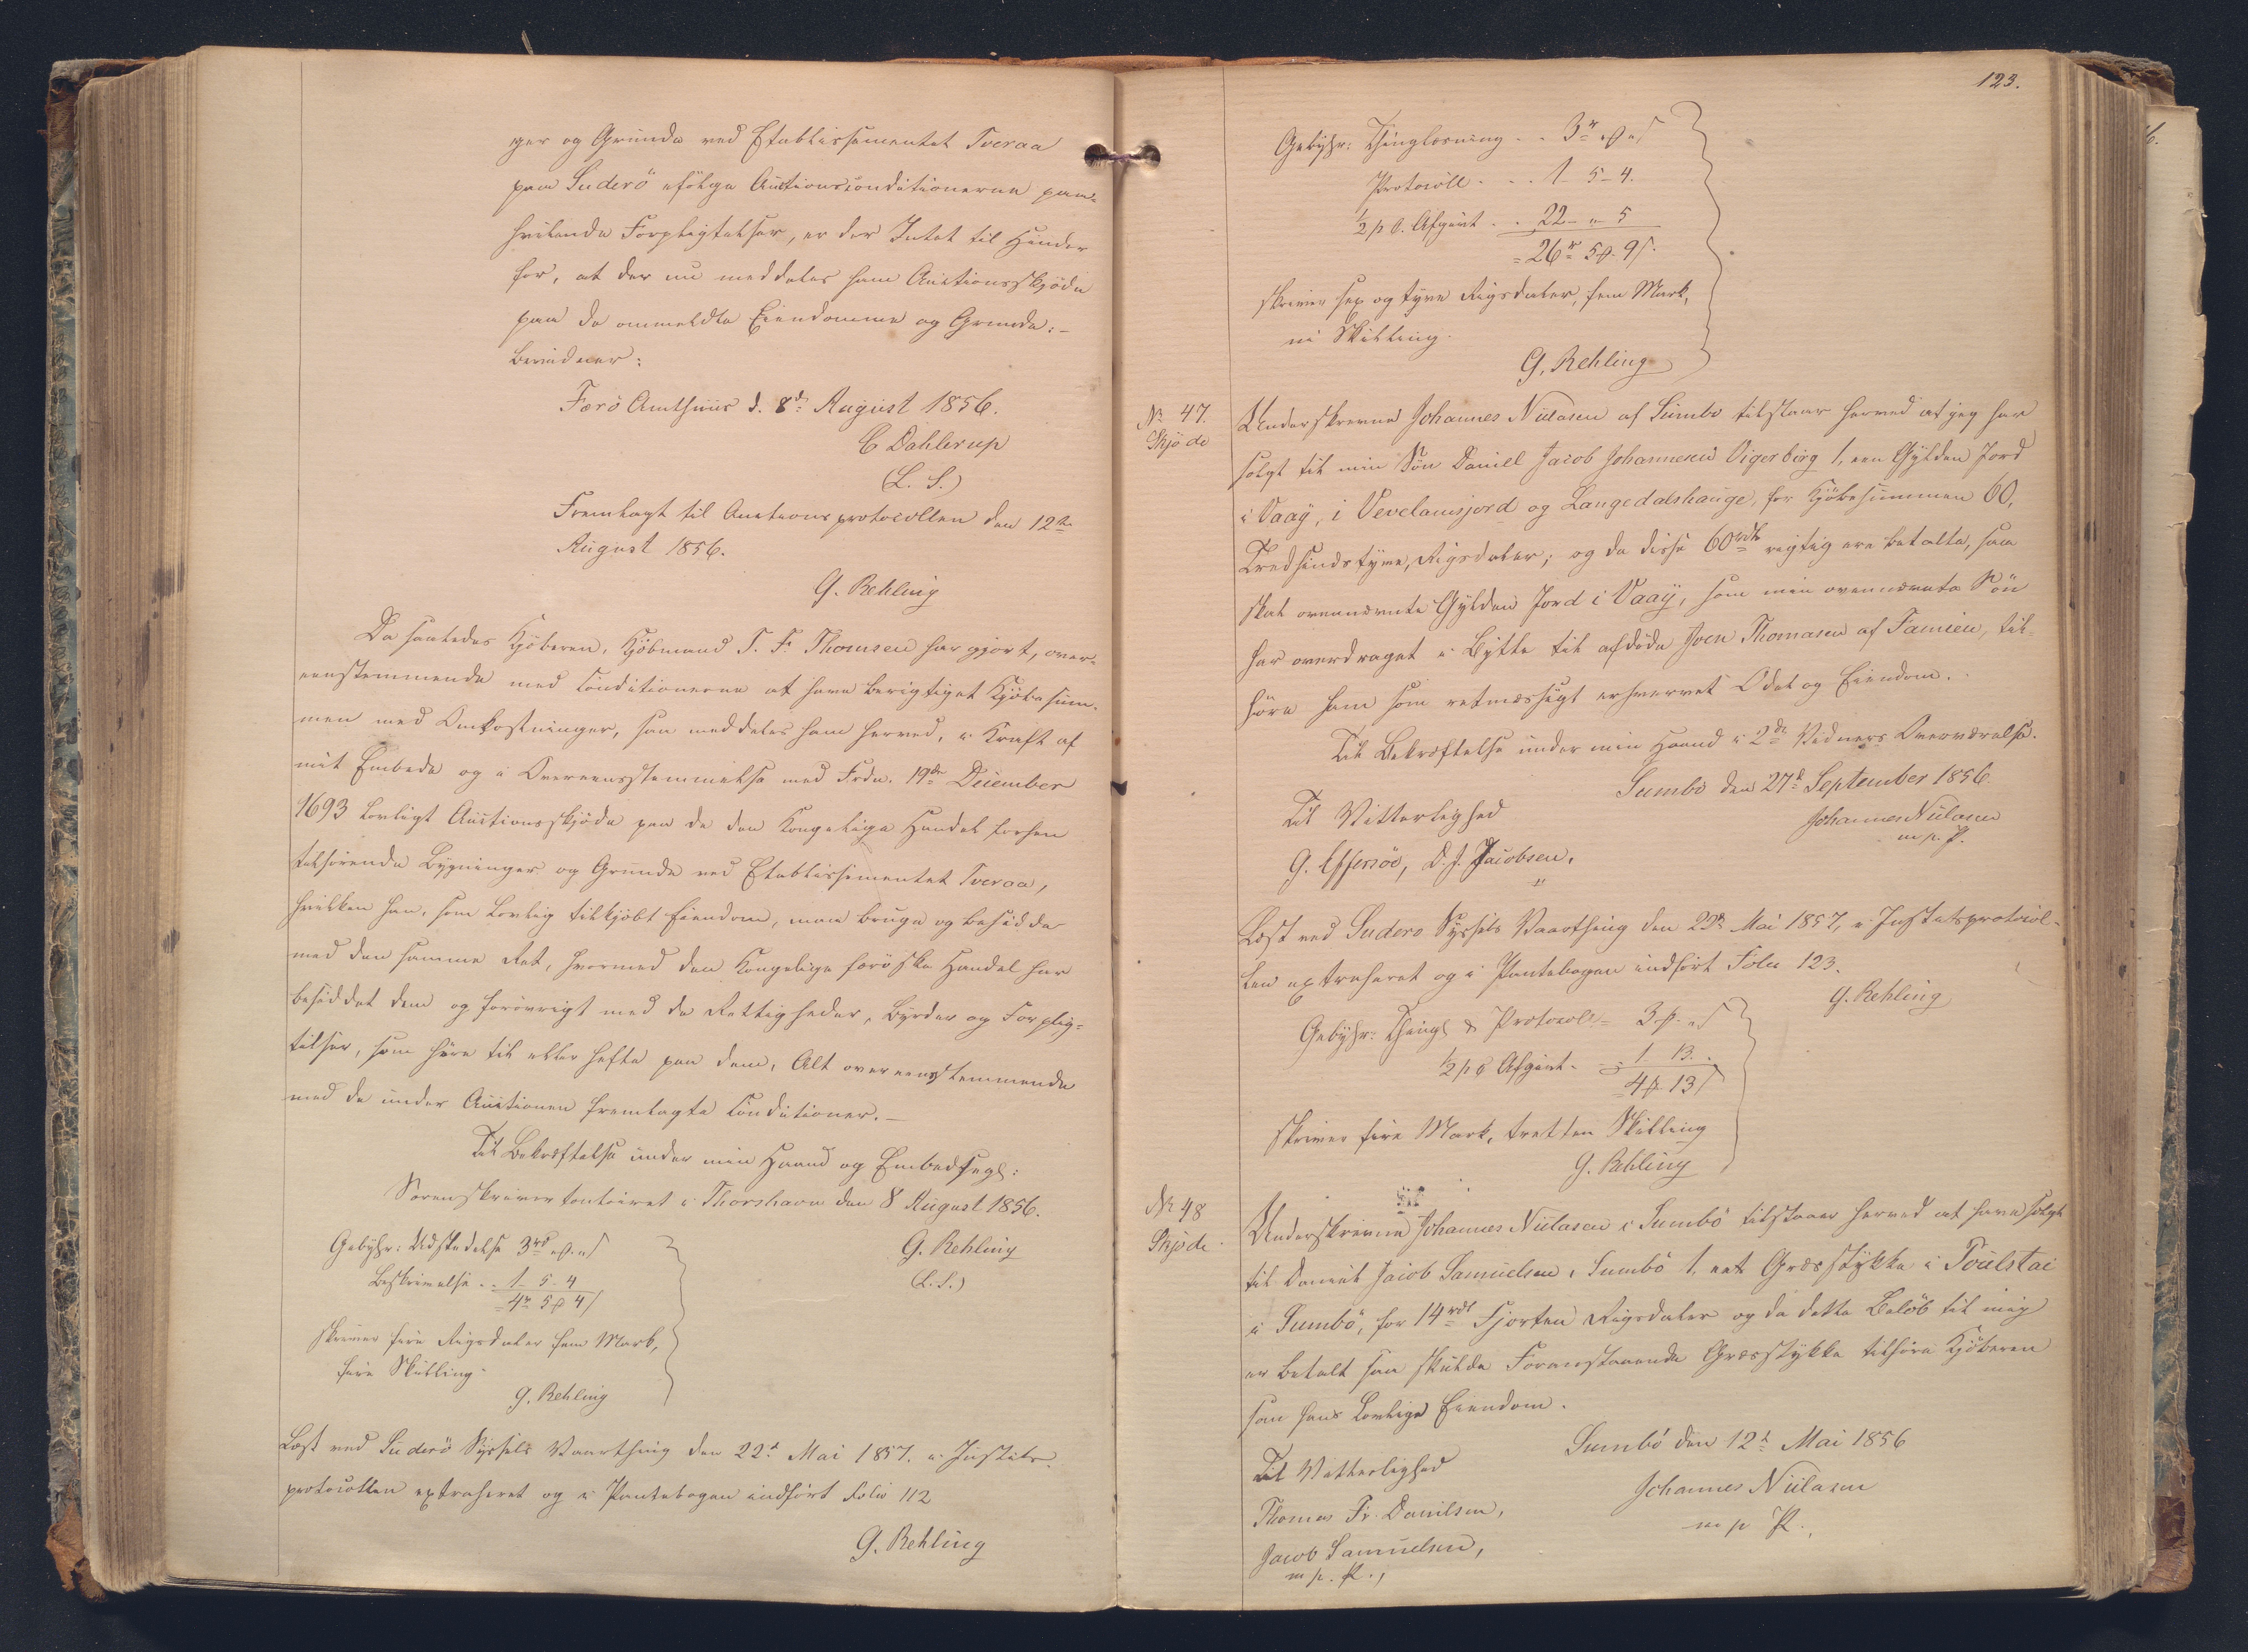 ger og Grunde ved Etablissementet Tveraa
paa Suderö ifölge Auctionsconditionerne paa-
hvilende Forpligtelser, er der Intet til Hinder
for, at der nu meddeles ham Auctionsskjöde
paa de ommeldte Eiendomme og Grunde.-
Færö Amthuus d. 8de August 1856.
C Dahlerup
(L. S.)
Fremlagt til Auctionsprotocollen den 12te
August 1856.
G. Rehling
Da saaledes Kjöberen, Kjöbmand T. F. Thomsen har gjort, over-
eenstemmende med Conditionerne at have berigtiget Kjöbesum-
men med Omkostninger, saa meddeles ham herved, i Kraft af
mit Embede og i Overeensstemmelse med Frdn. 19de December
1693 lovligt Auctionsskjöde paa de den Kongelige Handel forhen
tilhörende Bygninger og Grunde ved Etablissementet Tveraa,
hvilken han, som lovlig tilkjöbt Eiendom, maa bruge og besidde
med den samme Ret, hvormed den Kongelige færöiske Handel har
besiddet dem og forövrigt med de Rettigheder, Byrder og Forplig-
telser, som höre til eller hefte paa dem, Alt overeensstemmende
med de under Auctionen fremlagte Conditioner.-
Til Bekræftelse under min Haand og Embedsegl:
Sorenskrivercontoiret i Thorshavn den 8 August 1856.
Gebyhr: Udstedelse 3rd " ß " s
G. Rehling
Beskrivelse . . 1 - 5 - 4
(L. S.)
= 4rd 5 ß 4 s
skriver fire Rigsdaler fem Mark,
fire Skilling
G. Rehling
Læst ved Suderö Syssels Vaarthing den 22d Mai 1857. i Justits-
protocollen extraheret og i Pantebogen indfört Folio 112
G. Rehling
123.
Gebyhr: Thinglæsning . . 3rd " ß " s
Protocoll . . . 1 - 5 - 4.
1/2 p C. Afgivt . . 22 - " - 5
= 26rd 5 ß 9 s.
skriver sex og tyve Rigsdaler, fem Mark,
ni Skilling.
G. Rehling
No 47.
Skjöde
Underskrevne Johannes Niilasen af Sumbö tilstaar herved at jeg har
solgt til min Sön Daniell Jacob Johannesen Vigerbirg 1, een Gylden Jord
i Vaag, i Vevelamsjord og Langedalshauge, for Kjöbesummen 60,
Tredsindstyve, Rigsdaler; og da disse 60rdl rigtig ere betalte, saa
skal ovennævnte Gylden Jord i Vaag, som min ovennævnte Sön
har overdraget i Bytte til afdöde Joen Thomasen af Famien, til-
höre ham som retmæssigt erhvervet Odel og Eiendom.
Til Bekræftelse under min Haand i 2de Vidners Overværelse.
Sumbö den 27d September 1856.
Til Vitterlighed
Johannes Niilasen
m. p. P.
G. Effersöe, D. J. Jacobsen.
Læst ved Suderö Syssels Vaarthing den 22d Mai 1857, i Justitsprotocol-
len extraheret og i Pantebogen indfört Folio 123.
G. Rehling
Gebyhr: Thingl & Protocoll = 3 ß " s
1/2 p C Afgivt - = 1 - 13.
= 4 ß 13 s
skriver fire Mark, tretten Skilling
G. Rehling
No 48
Skjöde
Underskrevne Johannes Niilasen i Sumbö tilstaaer herved at have solgt
til Daniel Jacob Samuelsen i Sumbö 1, eet Græsstykke i Toülstai
i Sumbö, for 14rdl Fjorten Rigsdaler og da dette Belöb til mig
er betalt saa skulde Foranstaaende Græsstykke tilhöre Kjöberen
som hans lovlige Eiendom.
Sumbö den 12d Mai 1856
Til Vitterlighed
Johannes Niilasen
m p P.
Thomas Fr. Danilsen,
Jacob Samuelsen,
m p. P.,